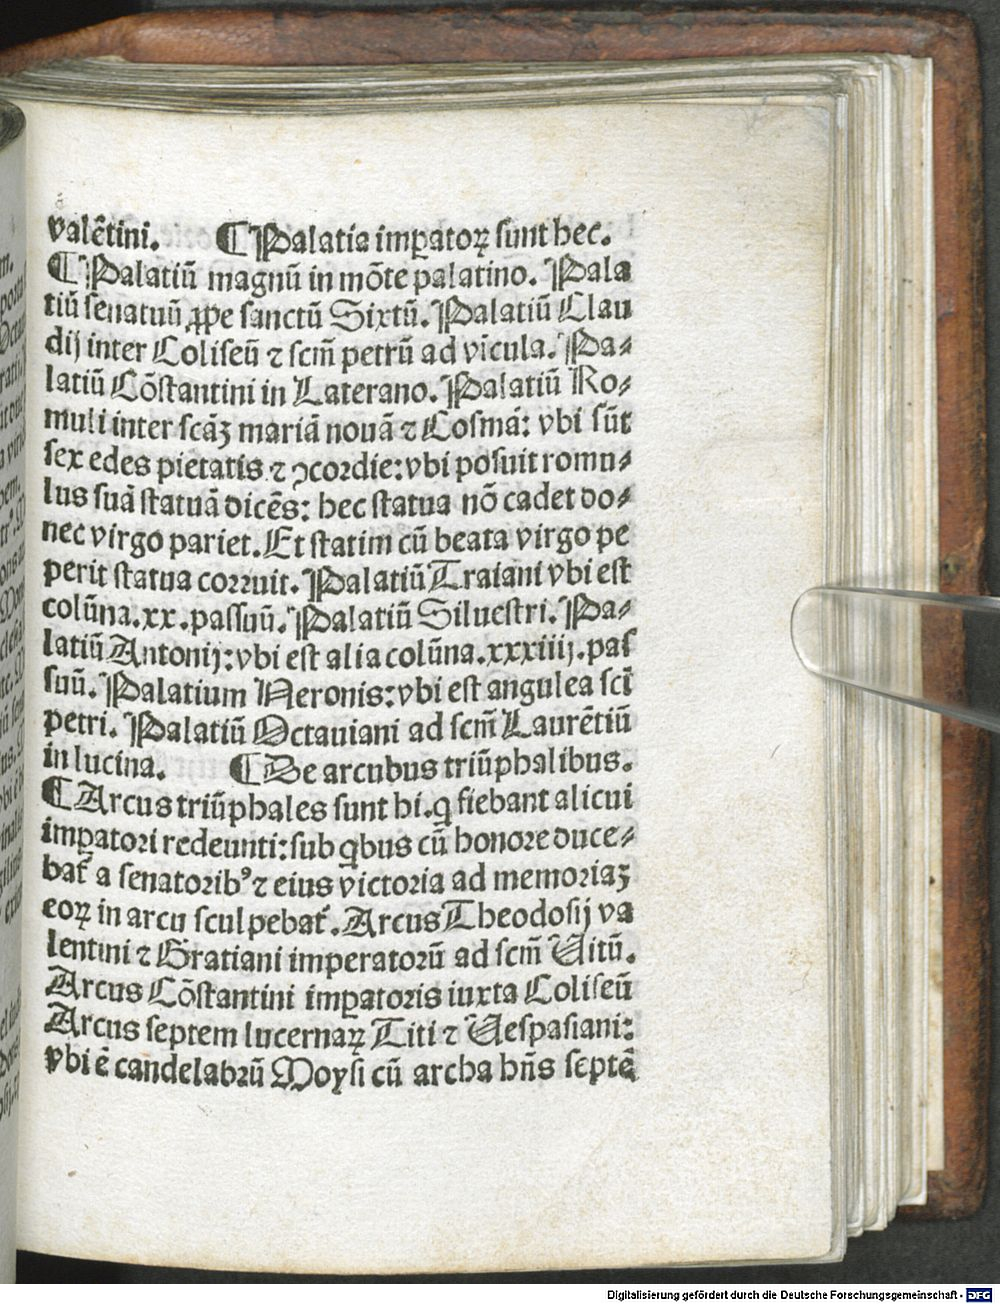 valētini. ¶ Palatia imꝑatoꝝ sunt hec.
¶ Palatiū magnū in mōte palatino. Pala
tiū senatuū ꝓpe sanctū Sixtū. Palatiū Clau
dij inter Coliseū ⁊ scm̄ petrū ad vīcula. Pa⸗
latiū Cōstantini in Laterano. Palatiū Ro⸗
muli inter scāꝫ mariā nouā ⁊ Cosmā: vbi sūt
sex edes pietatis ⁊ ꝯcordie: vbi posuit romu⸗
lus suā statuā dicēs: hec statua nō cadet do⸗
nec virgo pariet. Et statim cū beata virgo pe
perit statua corruit. Palatiū Traiani vbi est
colūna .xx. passuū. Palatiū Siluestri. Pa⸗
latiū Antonij: vbi est alia colūna .xxxiiij. pas
suū. Palatium Neronis: vbi est angulea scī
petri. Palatiū Octauiani ad scm̄ Laurētiū
in lucina. ¶ De arcubus triūphalibus.
¶ Arcus triūphales sunt hi. q fiebant alicui
imꝑatori redeunti: sub qbus cū honore duce⸗
bat᷑ a senatorib⁹ ⁊ eius victoria ad memoriaꝫ
eoꝝ in arcu sculpebat᷑. Arcus Theodosij va
lentini ⁊ Gratiani imperatorū ad scm̄ Vitū.
Arcus Cōstantini imꝑatoris iuxta Coliseū
Arcus septem lucernaꝝ Titi ⁊ Vespasiani:
vbi ē candelabrū Moysi cū archa hn̄s septē
Digitalisierung gefördert durch die Deutsche Forschungsgemeinschaft - DFG